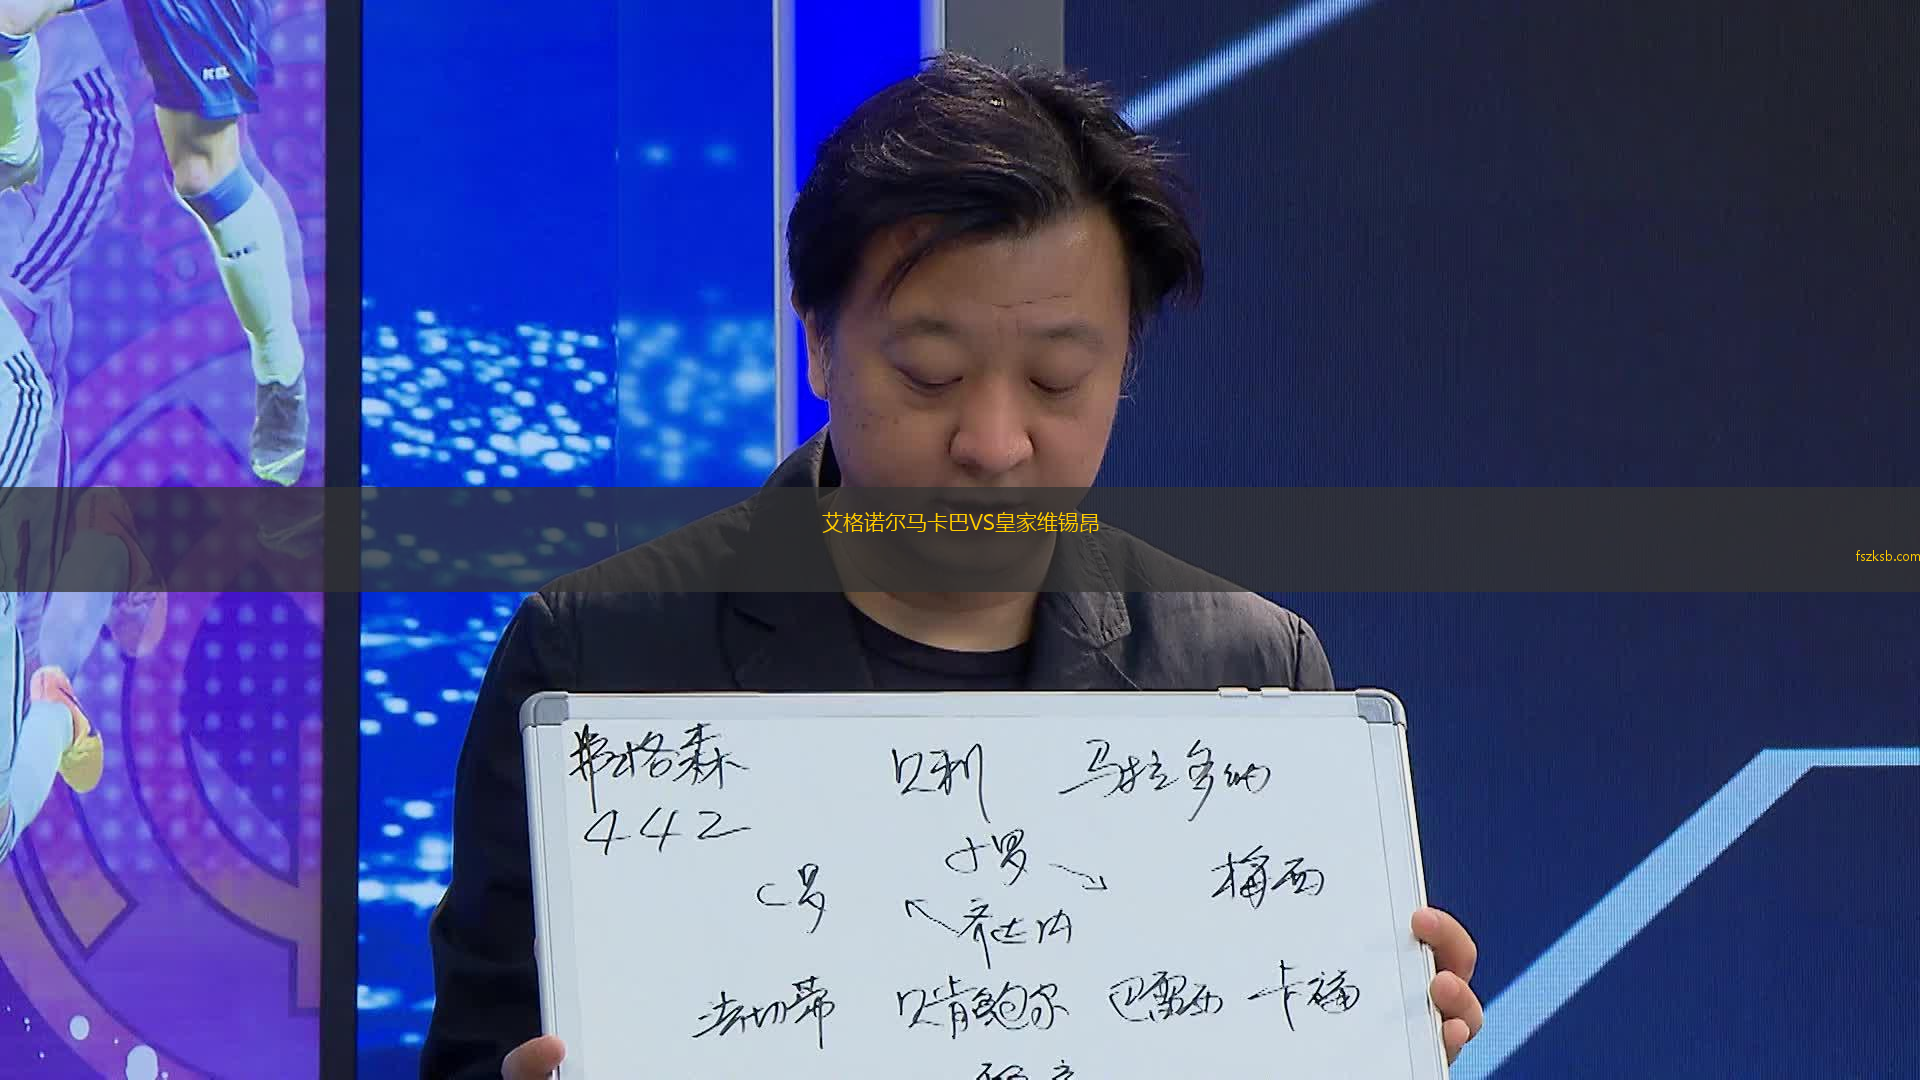 艾格诺尔马卡巴VS皇家维锡昂
fszksb.com
弗格森 贝利 马拉多纳
442
小罗
C罗 梅西
齐达内
法切蒂 贝肯鲍尔 巴雷西 卡福